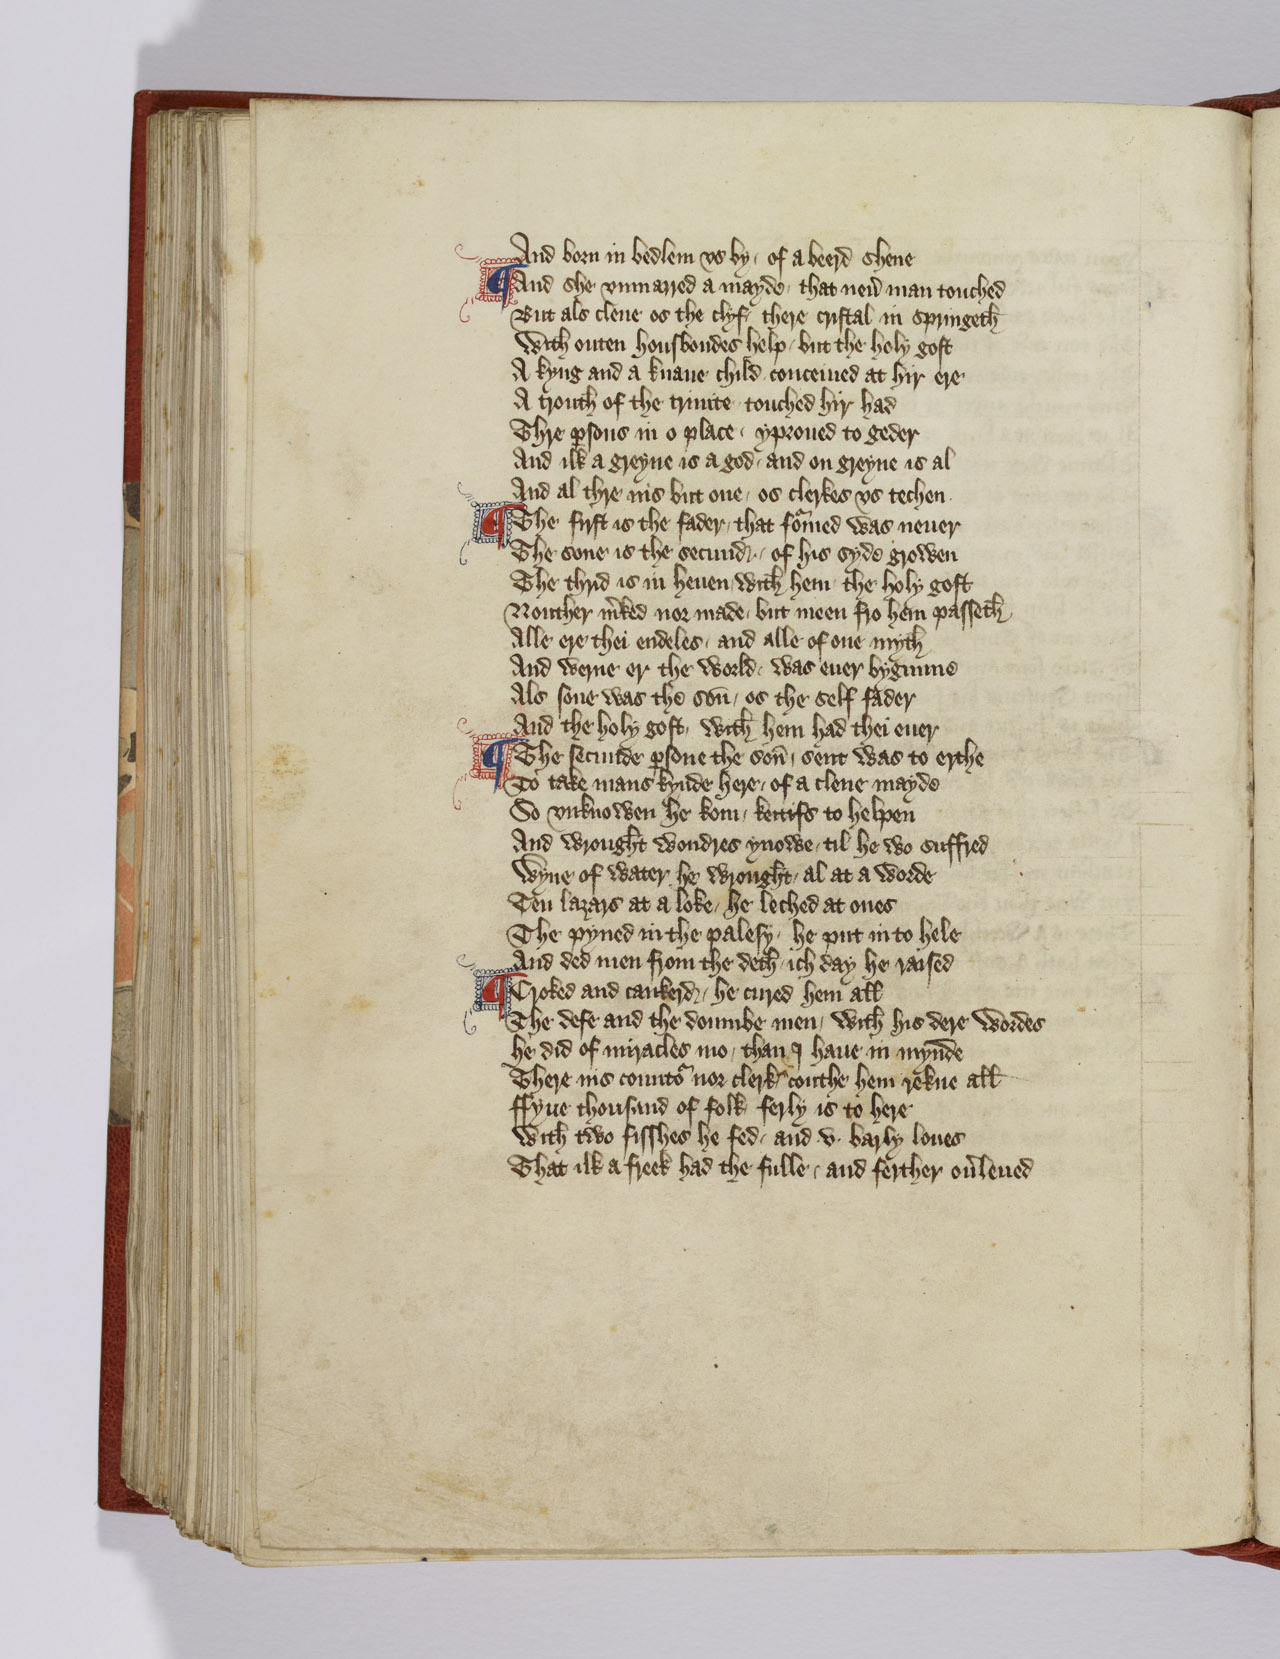 And born in bedlem vs by / of a beerd shene
¶ And she vnmarred a mayde / that neuͬ man touched
But als clene os the clyf / there cristal in springeth
With outen housbondes help / but the holy gost
A kyng and a knaue child / conceiued at hir ere
A trouth of the trinite / touched hir had
Thre ꝑsons in o place / yproued to geder
And ilk a greyne is a god / and on greyne is al
And al thre nis but one / os clerkes vs techen
¶ The first is the fader / that foͬmed was neuer
The sone is the secund / of his syde growen
The thrid is in heuen / with hem the holy gost
Nouther mͬked nor made / but meen fro hem passeth
Alle ere thei endeles / and alle of one myth
And werne er the world / was euer bygunne
Als sone was the son̄ / os the self fader
And the holy gost / with hem had thei euer
¶ The secunde ꝑsone the son̄ / sent was to erthe
To take mans kynde here / of a clene mayde
So vnknowen he kom / keitifs to helpen
And wrought wondres ynowe / til he wo suffred
Wyne of water he wrought / al at a worde
Ten lazars at a loke / he leched at ones
The pyned in the palesy / he put in to hele
And ded men from the deth / ich day he raised
¶ Croked and cankerd / he cured hem all
The defe and the doumbe men / with his dere wordes
he did of miracles mo / than I haue in mynde
There nis countoͬ nor clerk / couthe hem rekne all
ffyue thousand of folk / ferly is to here
With two fisshes he fed / and v. barly loues
That ilk a freek had the fulle / and ferther ouͬleued